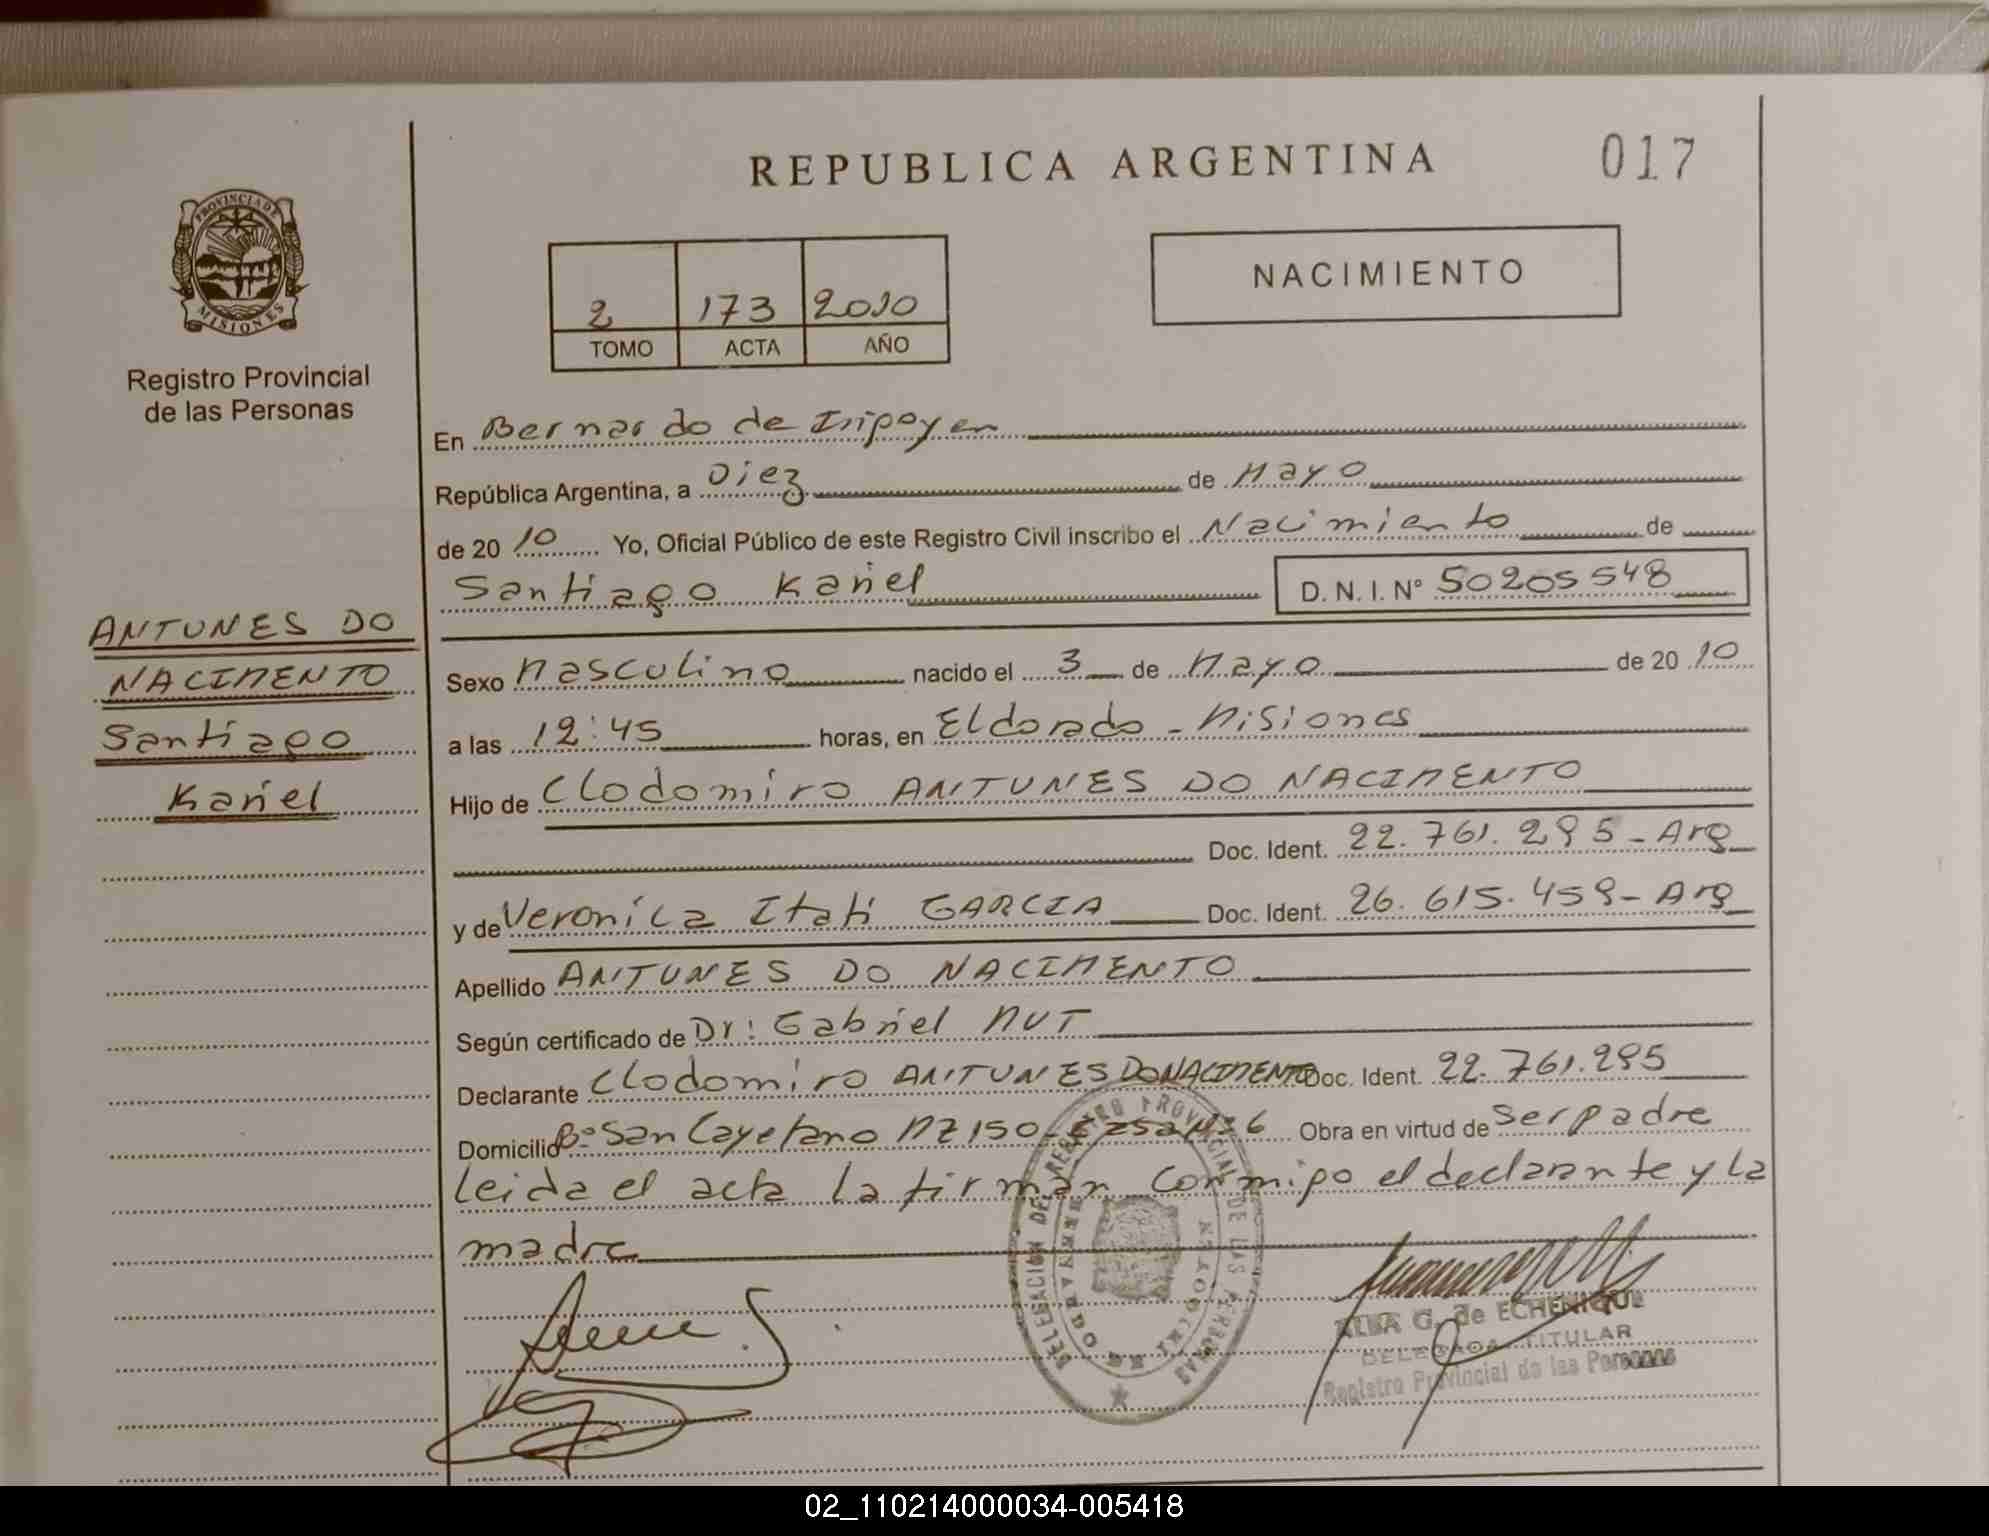 REPUBLICA ARGENTINA
017
PROVINCIA DE
MISIONES
Registro Provincial
de las Personas
2 173 2010
TOMO ACTA AÑO
NACIMIENTO
En Bernardo de Iripoyen
República Argentina, a Diez de Mayo
de 2010 Yo, Oficial Público de este Registro Civil inscribo el Nacimiento de
Santiago Kariel D. N. I. N° 50205548
ANTUNES DO
NACIMENTO
Santiago
Kariel
Sexo Masculino nacido el 3 de Mayo de 2010
a las 12:45 horas, en Eldorado - Misiones
Hijo de Clodomiro ANTUNES DO NACIMENTO
Doc. Ident. 22.761.295 - Arg
y de Veronica Itati GARCIA Doc. Ident. 26.615.459 - Arg
Apellido ANTUNES DO NACIMENTO
Según certificado de Dr: Gabriel MUT
Declarante Clodomiro ANTUNES DO NACIMENTO Doc. Ident. 22.761.295
Domicilio B° San Cayetano MZ 150 - Casa N° 6 Obra en virtud de ser padre
leida el acta la firman conmigo el declarante y la
madre
DELEGACION DEL REGISTRO PROVINCIAL DE LAS PERSONAS
ALBA G. de ECHENIQUE
DELEGADA TITULAR
Registro Provincial de las Personas
02_110214000034-005418